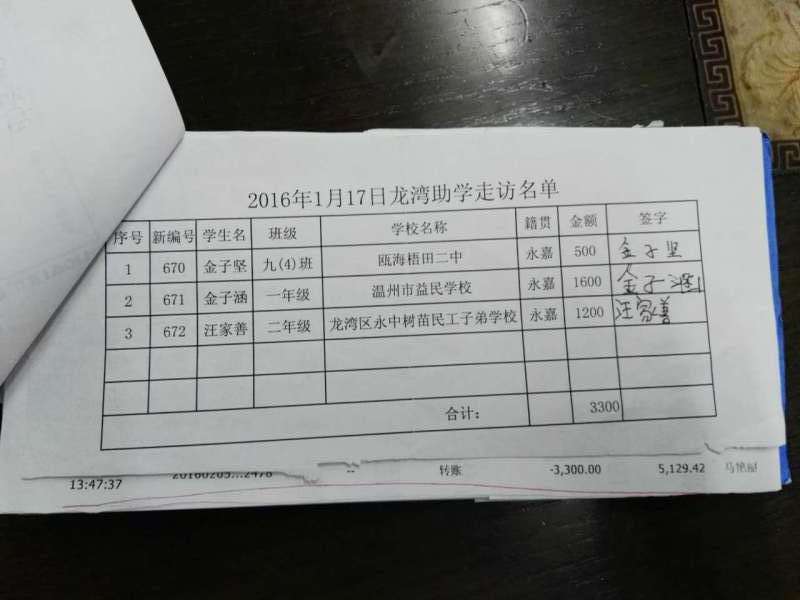 2016年1月17日龙湾助学走访名单
序号 新编号 学生名 班级 学校名称 籍贯 金额 签字
1 670 金子坚 九(4)班 瓯海梧田二中 永嘉 500 金子坚
2 671 金子涵 一年级 温州市益民学校 永嘉 1600 金子涵
3 672 汪家善 二年级 龙湾区永中树苗民工子弟学校 永嘉 1200 汪家善
合计: 3300
13:47:37 20160205...2478 -- 转账 -3,300.00 5,129.42